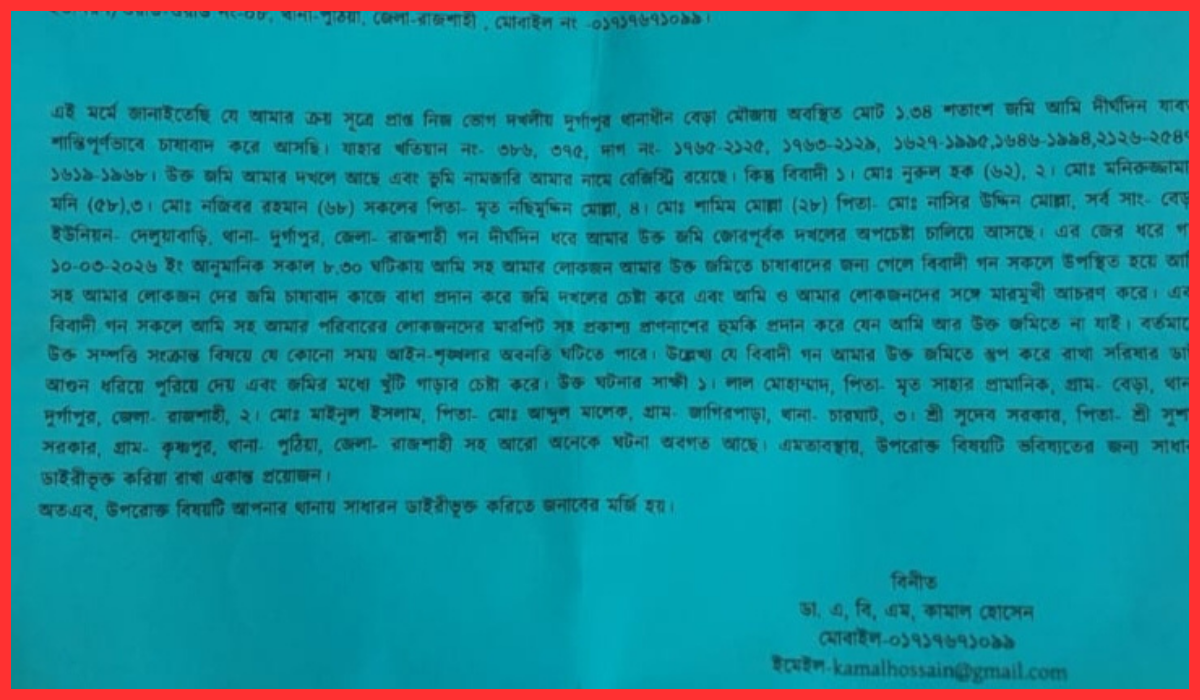 থানা-পুঠিয়া, জেলা-রাজশাহী, মোবাইল নং -০১৭১৭৬৭১০৯৯।
এই মর্মে জানাইতেছি যে আমার ক্রয় সূত্রে প্রাপ্ত নিজ ভোগ দখলীয় দুর্গাপুর থানাধীন বেড়া মৌজায় অবস্থিত মোট ১.৩৪ শতাংশ জমি আমি দীর্ঘদিন যাবৎ
শান্তিপূর্ণভাবে চাষাবাদ করে আসছি। যাহার খতিয়ান নং- ৩৮৬, ৩৭৫, দাগ নং- ১৭৬৫-২১২৫, ১৭৬৩-২১২৯, ১৬২৭-১৯৯৫,১৬৪৬-১৯৯৪,২১২৬-২৫৪৭
১৬১৯-১৯৬৮। উক্ত জমি আমার দখলে আছে এবং ভূমি নামজারি আমার নামে রেজিস্ট্রি রয়েছে। কিন্তু বিবাদী ১। মোঃ নুরুল হক (৬২), ২। মোঃ মনিরুজ্জামা
মনি (৫৮),৩। মোঃ নজিবর রহমান (৬৮) সকলের পিতা- মৃত নছিমুদ্দিন মোল্লা, ৪। মোঃ শামিম মোল্লা (২৮) পিতা- মোঃ নাসির উদ্দিন মোল্লা, সর্ব সাং- বেড়
ইউনিয়ন- দেলুয়াবাড়ি, থানা- দুর্গাপুর, জেলা- রাজশাহী গন দীর্ঘদিন ধরে আমার উক্ত জমি জোরপূর্বক দখলের অপচেষ্টা চালিয়ে আসছে। এর জের ধরে গ
১০-০৩-২০২৬ ইং আনুমানিক সকাল ৮.৩০ ঘটিকায় আমি সহ আমার লোকজন আমার উক্ত জমিতে চাষাবাদের জন্য গেলে বিবাদী গন সকলে উপস্থিত হয়ে আমি
সহ আমার লোকজন দের জমি চাষাবাদ কাজে বাধা প্রদান করে জমি দখলের চেষ্টা করে এবং আমি ও আমার লোকজনদের সঙ্গে মারমুখী আচরণ করে। এব
বিবাদী গন সকলে আমি সহ আমার পরিবারের লোকজনদের মারপিট সহ প্রকাশ্য প্রাণনাশের হুমকি প্রদান করে যেন আমি আর উক্ত জমিতে না যাই। বর্তমানে
উক্ত সম্পত্তি সংক্রান্ত বিষয়ে যে কোনো সময় আইন-শৃঙ্খলার অবনতি ঘটিতে পারে। উল্লেখ্য যে বিবাদী গন আমার উক্ত জমিতে স্তুপ করে রাখা সরিষার ডা
আগুন ধরিয়ে পুরিয়ে দেয় এবং জমির মধ্যে খুঁটি গাড়ার চেষ্টা করে। উক্ত ঘটনার সাক্ষী ১। লাল মোহাম্মাদ, পিতা- মৃত সাহার প্রামানিক, গ্রাম- বেড়া, থান
দুর্গাপুর, জেলা- রাজশাহী, ২। মোঃ মাইনুল ইসলাম, পিতা- মোঃ আব্দুল মালেক, গ্রাম- জাগিরপাড়া, থানা- চারঘাট, ৩। শ্রী সুদেব সরকার, পিতা- শ্রী সুশ
সরকার, গ্রাম- কৃষ্ণপুর, থানা- পুঠিয়া, জেলা- রাজশাহী সহ আরো অনেকে ঘটনা অবগত আছে। এমতাবস্থায়, উপরোক্ত বিষয়টি ভবিষ্যতের জন্য সাধার
ডাইরীভুক্ত করিয়া রাখা একান্ত প্রয়োজন।
অতএব, উপরোক্ত বিষয়টি আপনার থানায় সাধারন ডাইরীভুক্ত করিতে জনাবের মর্জি হয়।
বিনীত
ডা. এ, বি, এম, কামাল হোসেন
মোবাইল-০১৭১৭৬৭১০৯৯
ইমেইল-kamalhossain@gmail.com